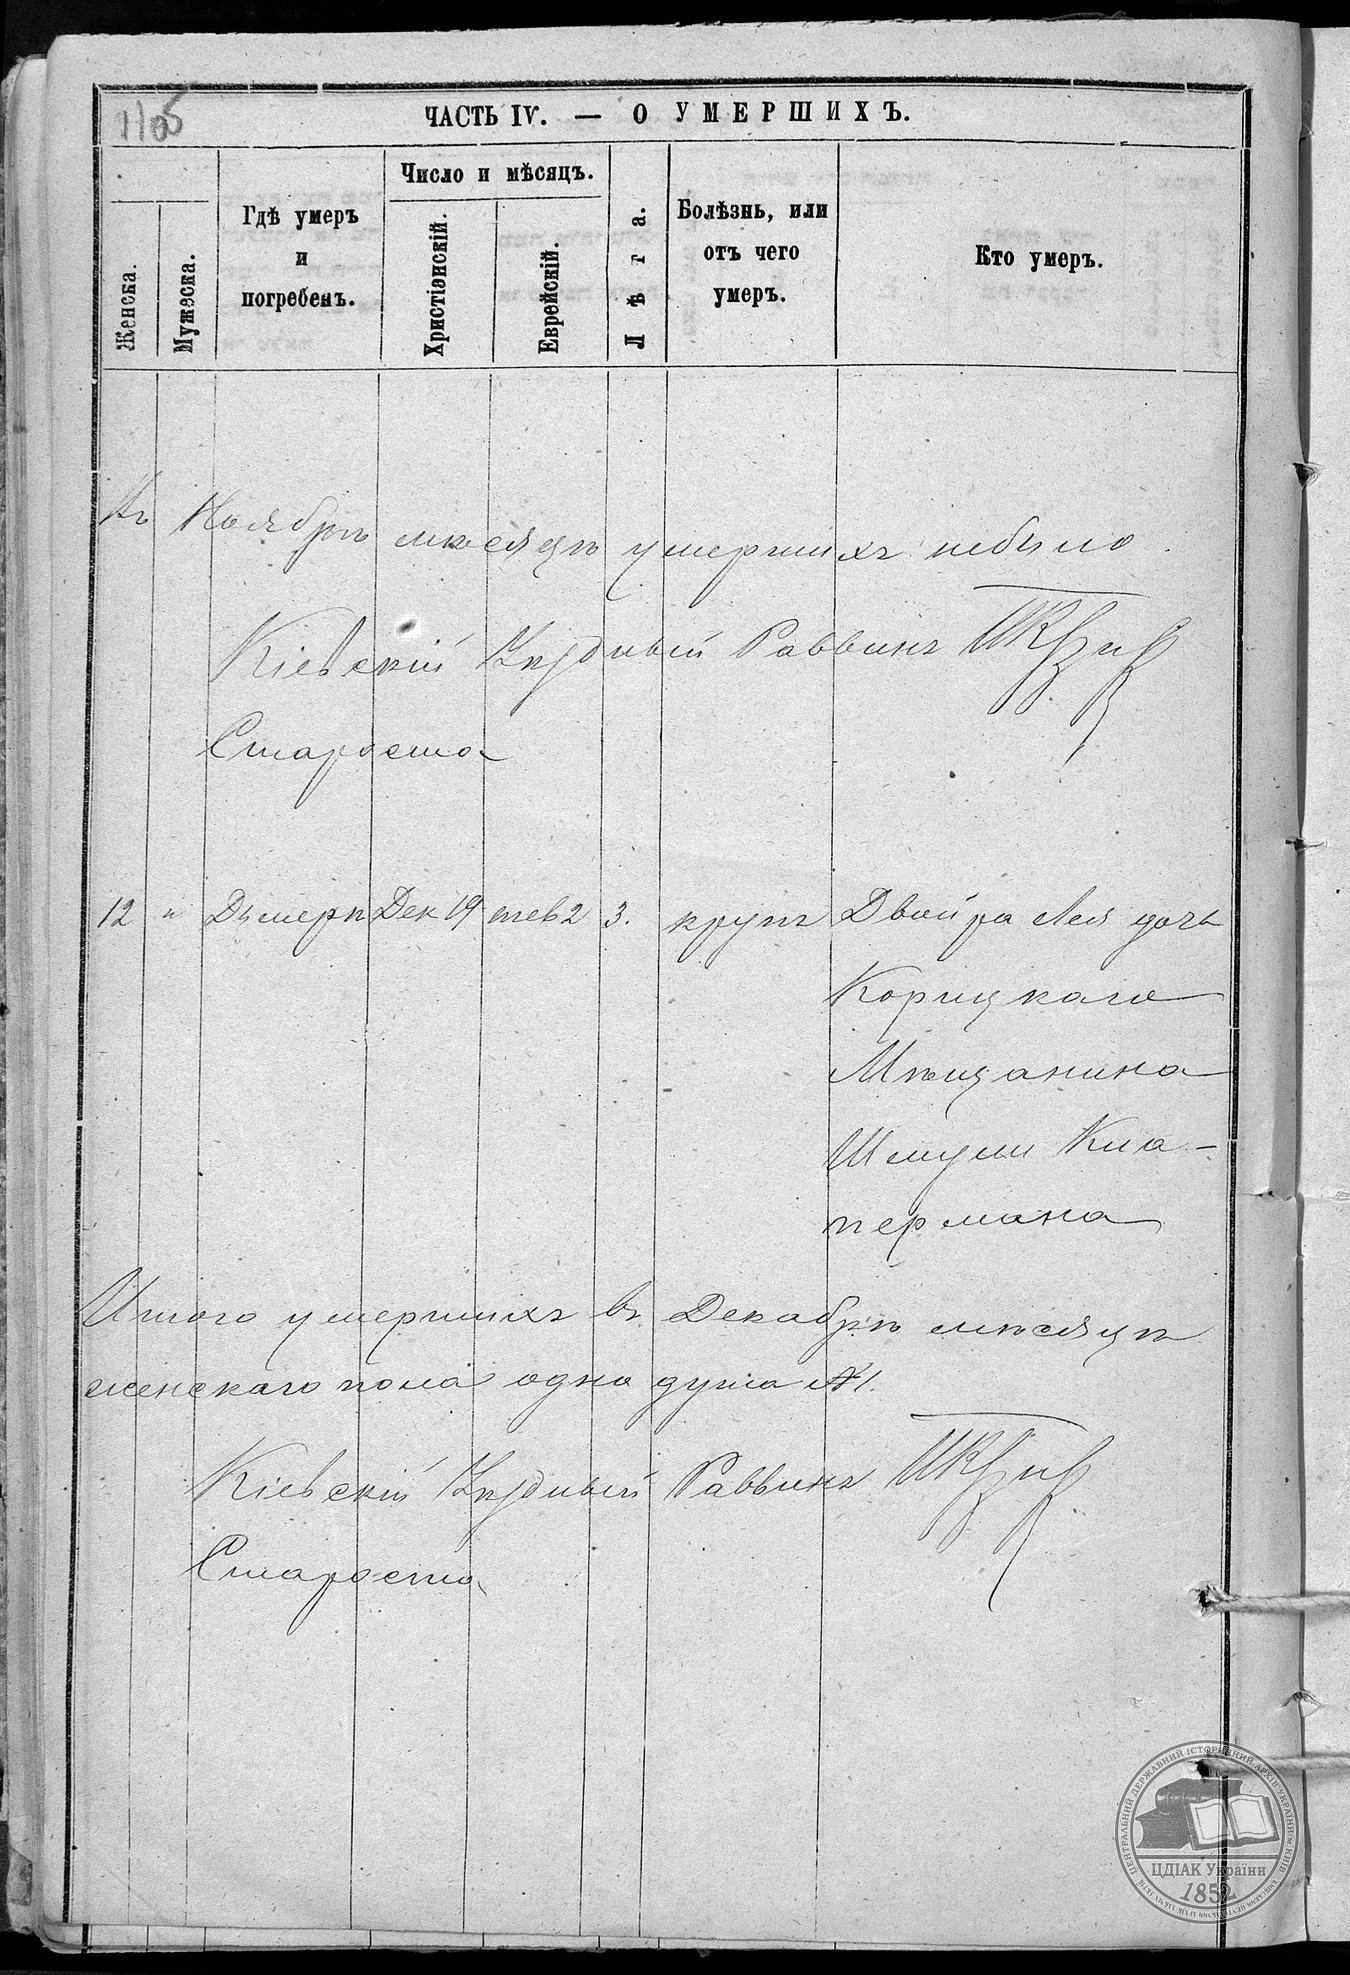 1105
ЧАСТЬ IV. — О УМЕРШИХЪ.
Женска.
Мужеска.
Гдѣ умеръ
и
погребенъ.
Число и мѣсяцъ.
Христіэнскій.
Еврейскій.
Лѣта.
Болѣзнь, или
отъ чего
умеръ.
Кто умеръ.
Въ Ноябрѣ мѣсяцѣ умершихъ небыло.
Кіевскій Уѣздный Раввинъ
Староста
12 " Дымеръ Дек 19 тев 2 3. крупъ Двойра Лея дочь
Корицкаго
Мѣщанина
Шмули Кла-
пермана
Итого умершихъ въ Декабрѣ мѣсяцѣ
женскаго пола одна душа №1.
Кіевскій Уѣздный Раввинъ
Староста
ЦЕНТРАЛЬНИЙ ДЕРЖАВНИЙ ІСТОРИЧНИЙ АРХІВ УКРАЇНИ м. КИЇВ
ЦДІАК України
1852